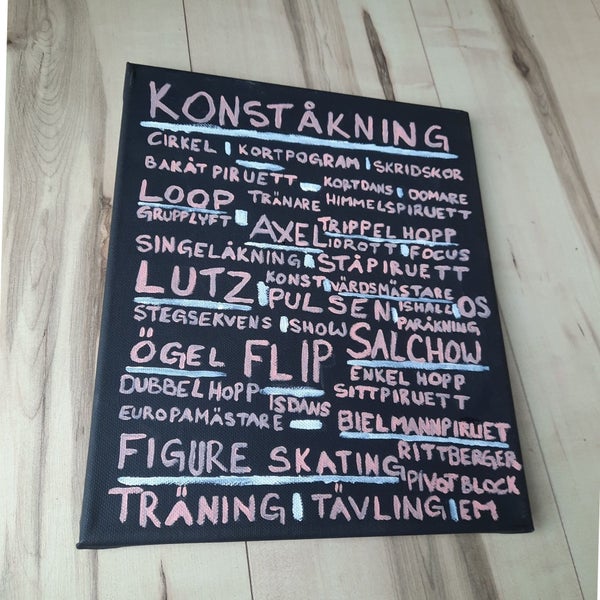 KONSTÅKNING
CIRKEL KORTPOGRAM SKRIDSKOR
BAKÅT PIRUETT KORTDANS DOMARE
LOOP TRÄNARE HIMMELSPIRUETT
GRUPPLYFT AXEL TRIPPEL HOPP
IDROTT FOCUS
SINGELÅKNING STÅPIRUETT
LUTZ KONST VÄRDSMÄSTARE
PULSEN ISHALL OS
STEGSEKVENS SHOW PARÅKNING
ÖGEL FLIP SALCHOW
ENKEL HOPP
DUBBELHOPP SITTPIRUETT
EUROPAMÄSTARE ISDANS
BIELMANNPIRUET
FIGURE SKATING RITTBERGER
PIVOT BLOCK
TRÄNING TÄVLING EM